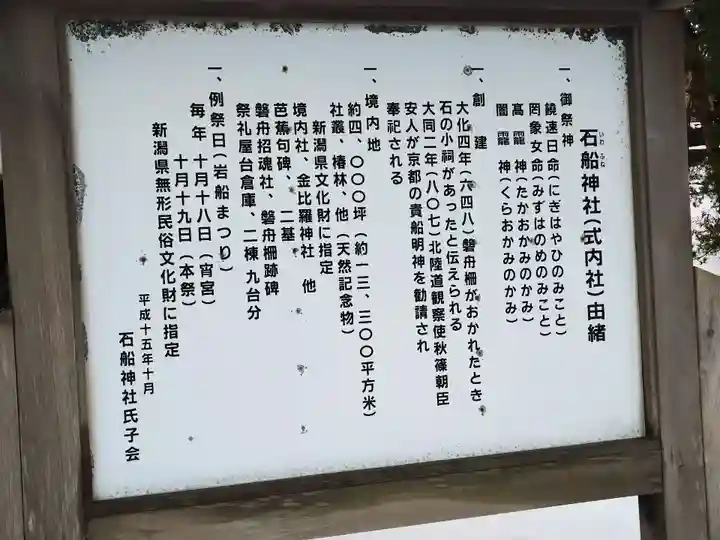 石船神社(式内社)由緒
いわ ふね
一、御祭神
饒速日命(にぎはやひのみこと)
罔象女命(みずはのめのみこと)
髙龗 神(たかおかみのかみ)
闇龗 神(くらおかみのかみ)
一、創 建
大化四年(六四八)磐舟柵がおかれたとき
石の小祠があったと伝えられる
大同二年(八〇七)北陸道観察使秋篠朝臣
安人が京都の貴船明神を勧請され
奉祀される
一、境内地
約四、〇〇〇坪(約一三、三〇〇平方米)
社叢、椿林、他(天然記念物)
新潟県文化財に指定
境内社、金比羅神社 他
芭蕉句碑、二基
磐舟招魂社、磐舟柵跡碑
祭礼屋台倉庫、二棟 九台分
一、例祭日(岩船まつり)
毎年 十月十八日(宵宮)
十月十九日(本祭)
新潟県無形民俗文化財に指定
平成十五年十月
石船神社氏子会